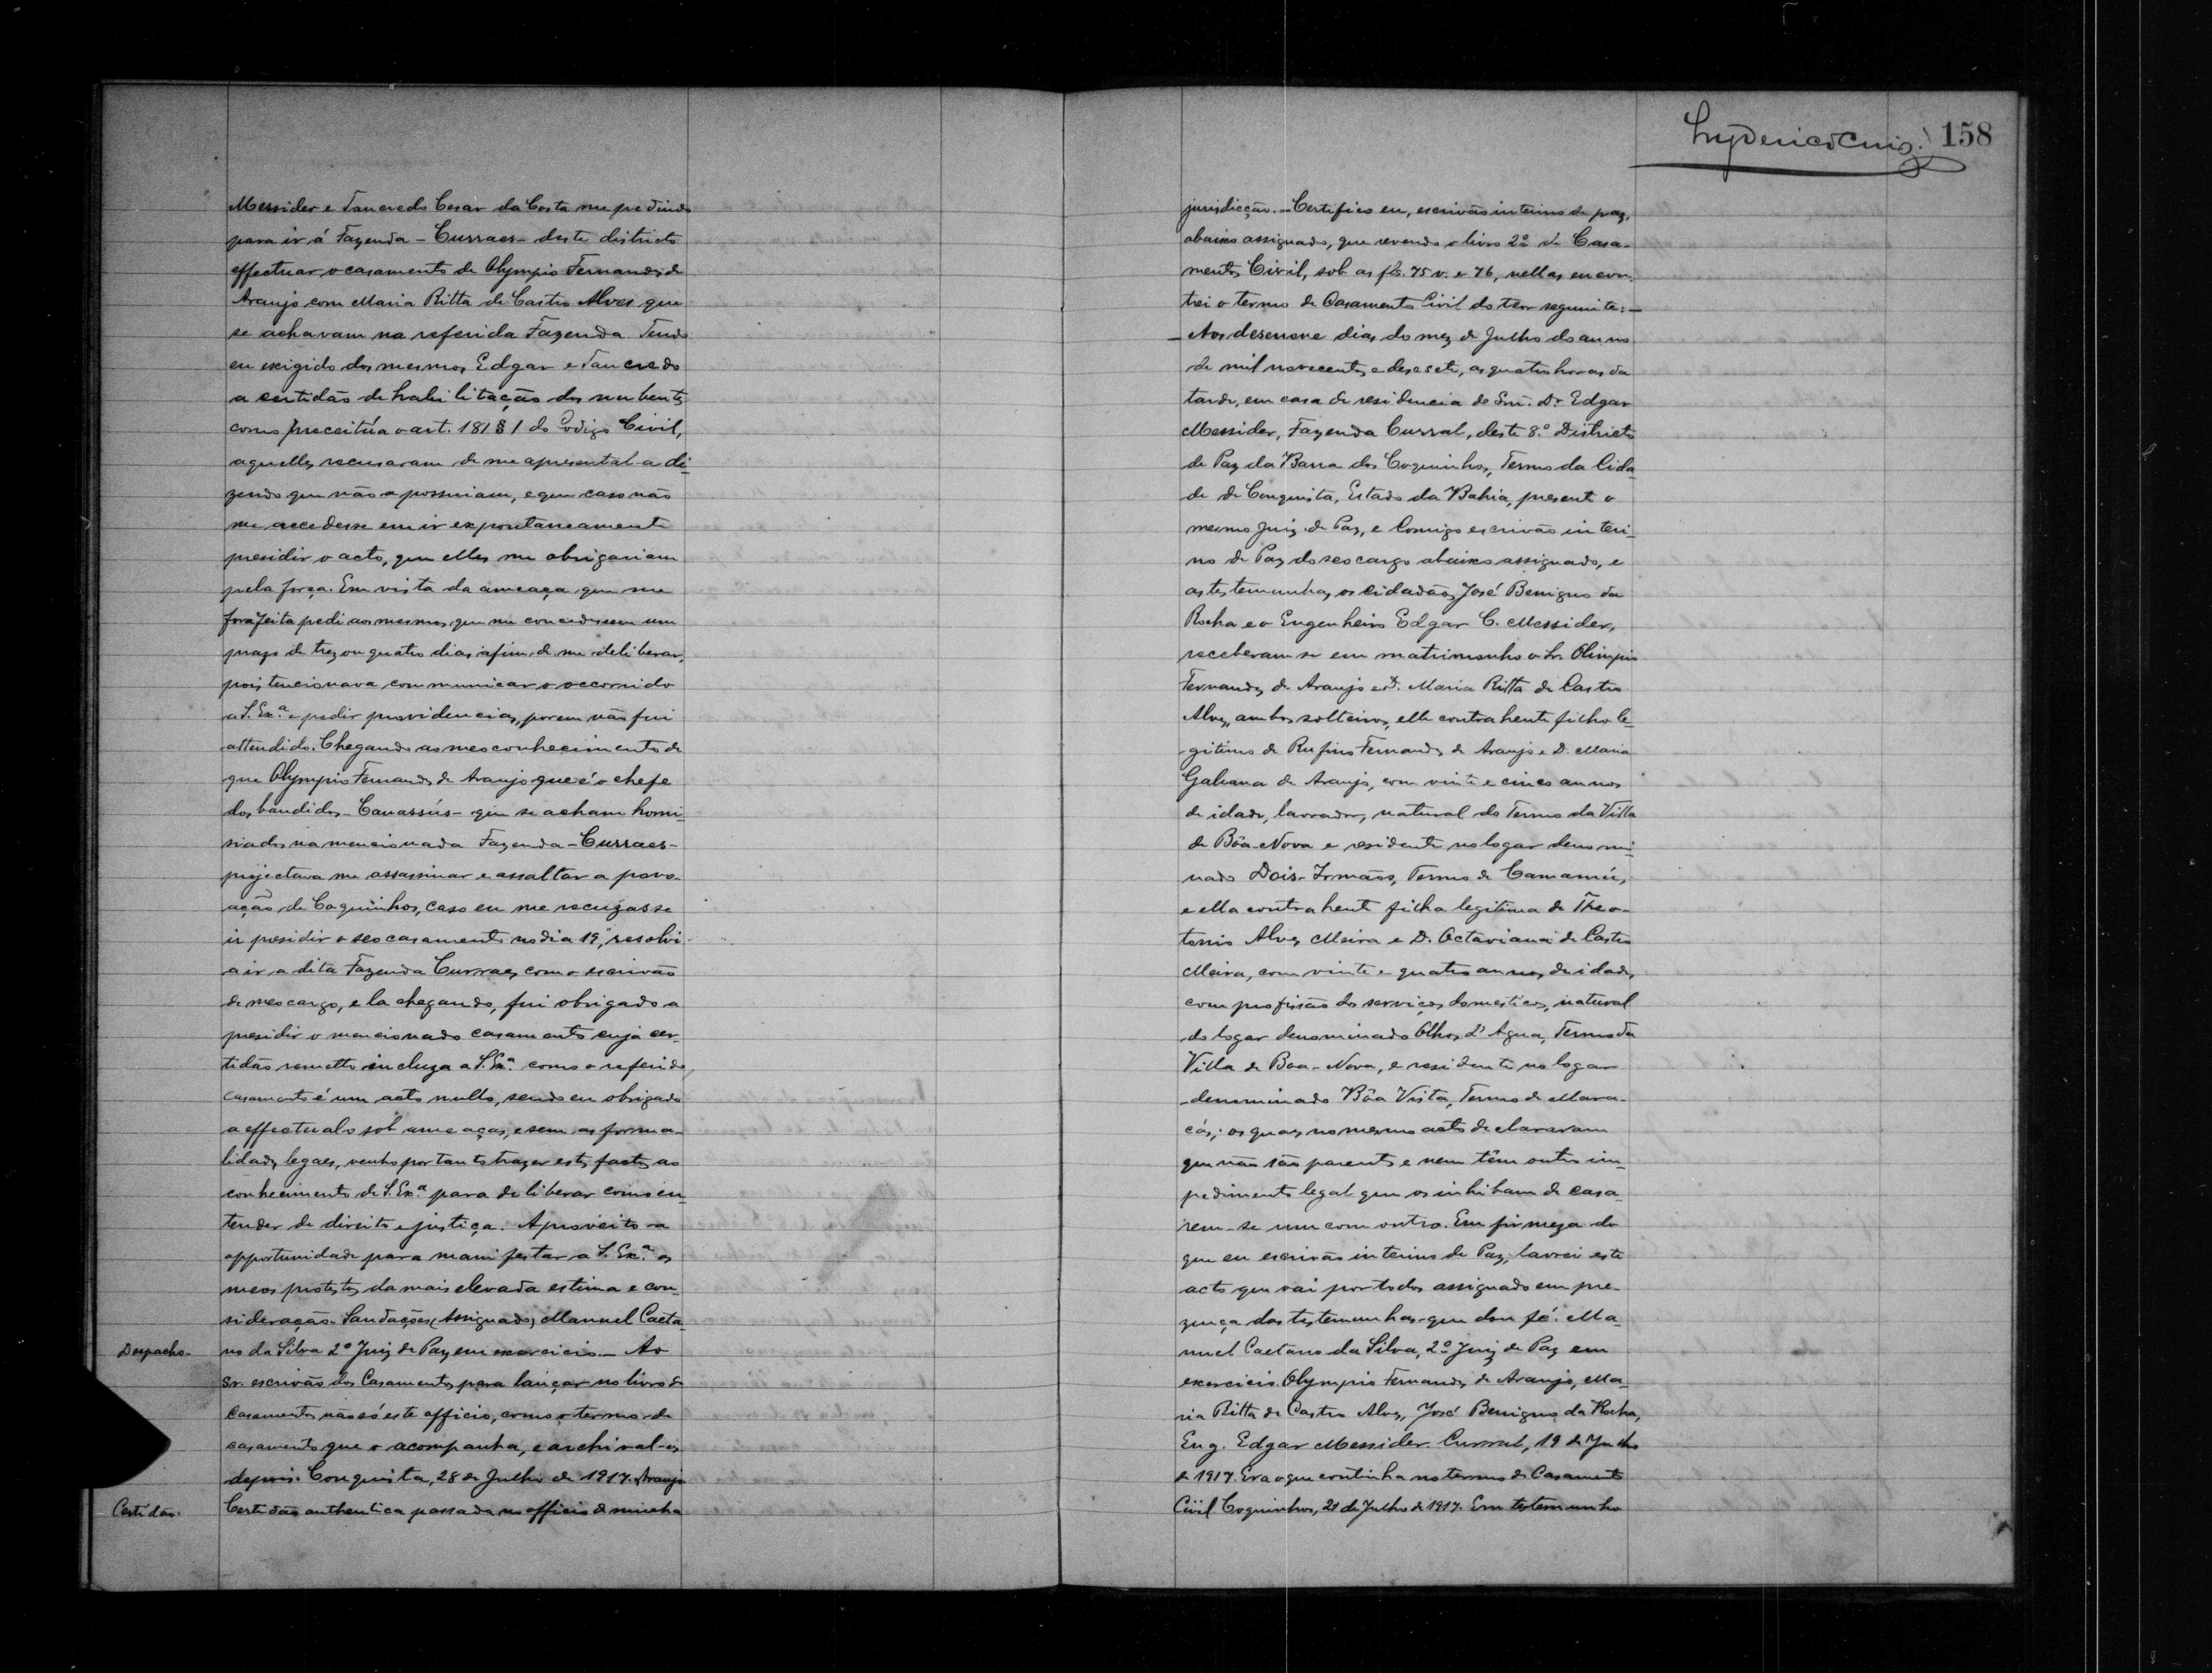 Messider e Tancredo Cesar da Costa me pedindo
para ir á Fazenda - Curraes - deste districto
effectuar o casamento de Olympio Fernandes de
Araujo com Maria Ritta de Castro Alves que
se achavam na referida Fazenda. Tendo
eu exigido dos mesmos Edgar e Tancredo
a certidão de habilitação dos nubentes
como preceitúa o art. 181 § 1 do Codigo Civil,
aquelles recusaram de me apresental-a di-
zendo que não a possuiam, e que caso não
me accedesse em ir expontaneamente
presidir o acto, que elles me obrigariam
pela força. Em vista da ameaça que me
fora feita pedi aos mesmos que me concedessem um
prazo de trez ou quatro dias afim de me deliberar,
pois tencionava communicar o occorrido
a S. Exª. e pedir providencias, porem não fui
attendido. Chegando ao meo conhecimento de
que Olympio Fernandes de Araujo que é o chefe
dos bandidos - Cauassús - que se acham homi-
siados na mencionada Fazenda - Curraes -
projectava me assassinar e assaltar a povo-
ação de Coquinhos, caso eu me recuzasse
ir presidir o seo casamento no dia 19, resolvi
a ir a dita Fazenda Curraes com o escrivão
de meo cargo, e la chegando, fui obrigado a
presidir o mencionado casamento cuja cer-
tidão remetto incluza a S. Exª. como o referido
casamento é um acto nullo, sendo eu obrigado
a effectualo sob ameaças, e sem as forma-
lidades legaes, venho por tanto trazer estes factos ao
conhecimento de S. Exª. para deliberar como en-
tender de direito e justiça. Aproveito a
opportunidade para manifestar a S. Exª. os
meos protestos da mais elevada estima e con-
sideração. Saudações (Assignado) Manuel Caeta-
Despacho- no da Silva 2º Juiz de Paz em exercicio. - Ao
Sr. escrivão dos Casamentos para lançar no livro de
Casamentos não só este officio, como o termo de
casamento que o acompanha, e archival-os
depois. Conquista, 28 de Julho de 1917. Araujo
Certidão. Certidão authentica passada no officio de minha
158
jurisdicção. - Certifico eu, escrivão interino de paz,
abaixo assignado, que revendo o livro 2º de Casa-
mentos Civil, sob as fls. 75 v. e 76, nellas encon-
trei o termo de Casamento Civil do teor seguinte: -
- Aos desenove dias do mez de Julho do anno
de mil novecentos e desesete, as quatro horas da
tarde, em casa de residencia do Snr. Dr. Edgar
Messider, Fazenda Curral, deste 8.º Districto
de Paz da Barra dos Coquinhos, Termo da Cida
de de Conquista, Estado da Bahia, presente o
mesmo Juiz de Paz, e Comigo escrivão interi-
no de Paz do seo cargo abaixo assignado, e
as testemunhas os Cidadãos José Benigno da
Rocha e o Engenheiro Edgar C. Messider,
receberam-se em matrimonho o Sr. Olimpio
Fernandes de Araujo e D. Maria Ritta de Castro
Alves, ambos solteiros, elle contrahente filho le-
gitimo de Rufino Fernandes de Araujo e D. Maria
Galeana de Araujo, com vinte e cinco annos
de idade, lavrador, natural do Termo da Villa
de Bôa-Nova e residente no logar denomi-
nado Dois-Irmãos, Termo de Camamú,
e ella contrahente filha legitima de Theo-
tonio Alves Meira e D. Octaviana de Castro
Meira, com vinte e quatro annos de idade,
com profissão dos serviços domesticos, natural
do logar denominado Olhos d'Agua, Termo da
Villa de Boa-Nova, e residente no logar
denominado Bôa Vista, Termo de Mara-
cás; os quaes no mesmo acto declararam
que não são parentes e nem têm outro im-
pedimento legal que os inhibam de casa-
rem-se um com outro. Em firmeza do
que eu escrivão interino de Paz, lavrei este
acto que vai por todos assignado em pre-
zença das testemunhas que dou fé. Ma-
nuel Caetano da Silva, 2º Juiz de Paz em
exercicio. Olympio Fernandes de Araujo, Ma-
ria Ritta de Castro Alves, José Benigno da Rocha,
Eng. Edgar Messider. Curral, 19 de Julho
de 1917. Era o que continha no termo de Casamento
Civil. Coquinhos, 21 de Julho de 1917. Em testemunho